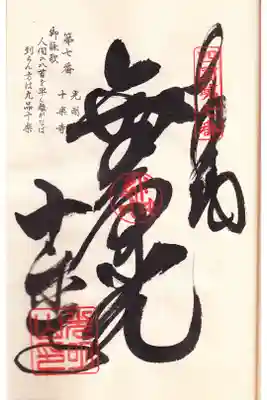 奉納
無量光
十樂寺
第七番
光明
十楽寺
御詠歌
人間の八苦を早く離れなば
到らん方は九品十楽